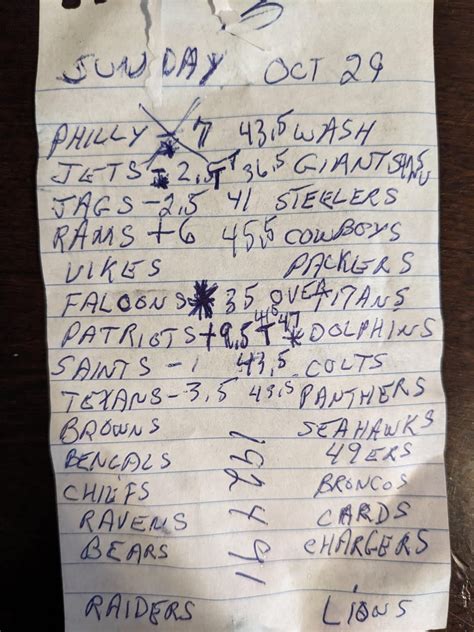 SUNDAY OCT 29
PHILLY - 7 43,5 WASH
JETS - 2,5 T 36,5 GIANTS
JAGS -2,5 41 STEELERS
RAMS +6 45,5 COWBOYS
VIKES PACKERS
FALCONS * 35 OVER TITANS
PATRIOTS +9,5 T 46 47 * DOLPHINS
SAINTS -1 43,5 COLTS
TEXANS -3,5 43,5 PANTHERS
BROWNS SEAHAWKS
BENGALS 49ERS
CHIEFS BRONCOS
RAVENS CARDS
BEARS CHARGERS
RAIDERS LIONS